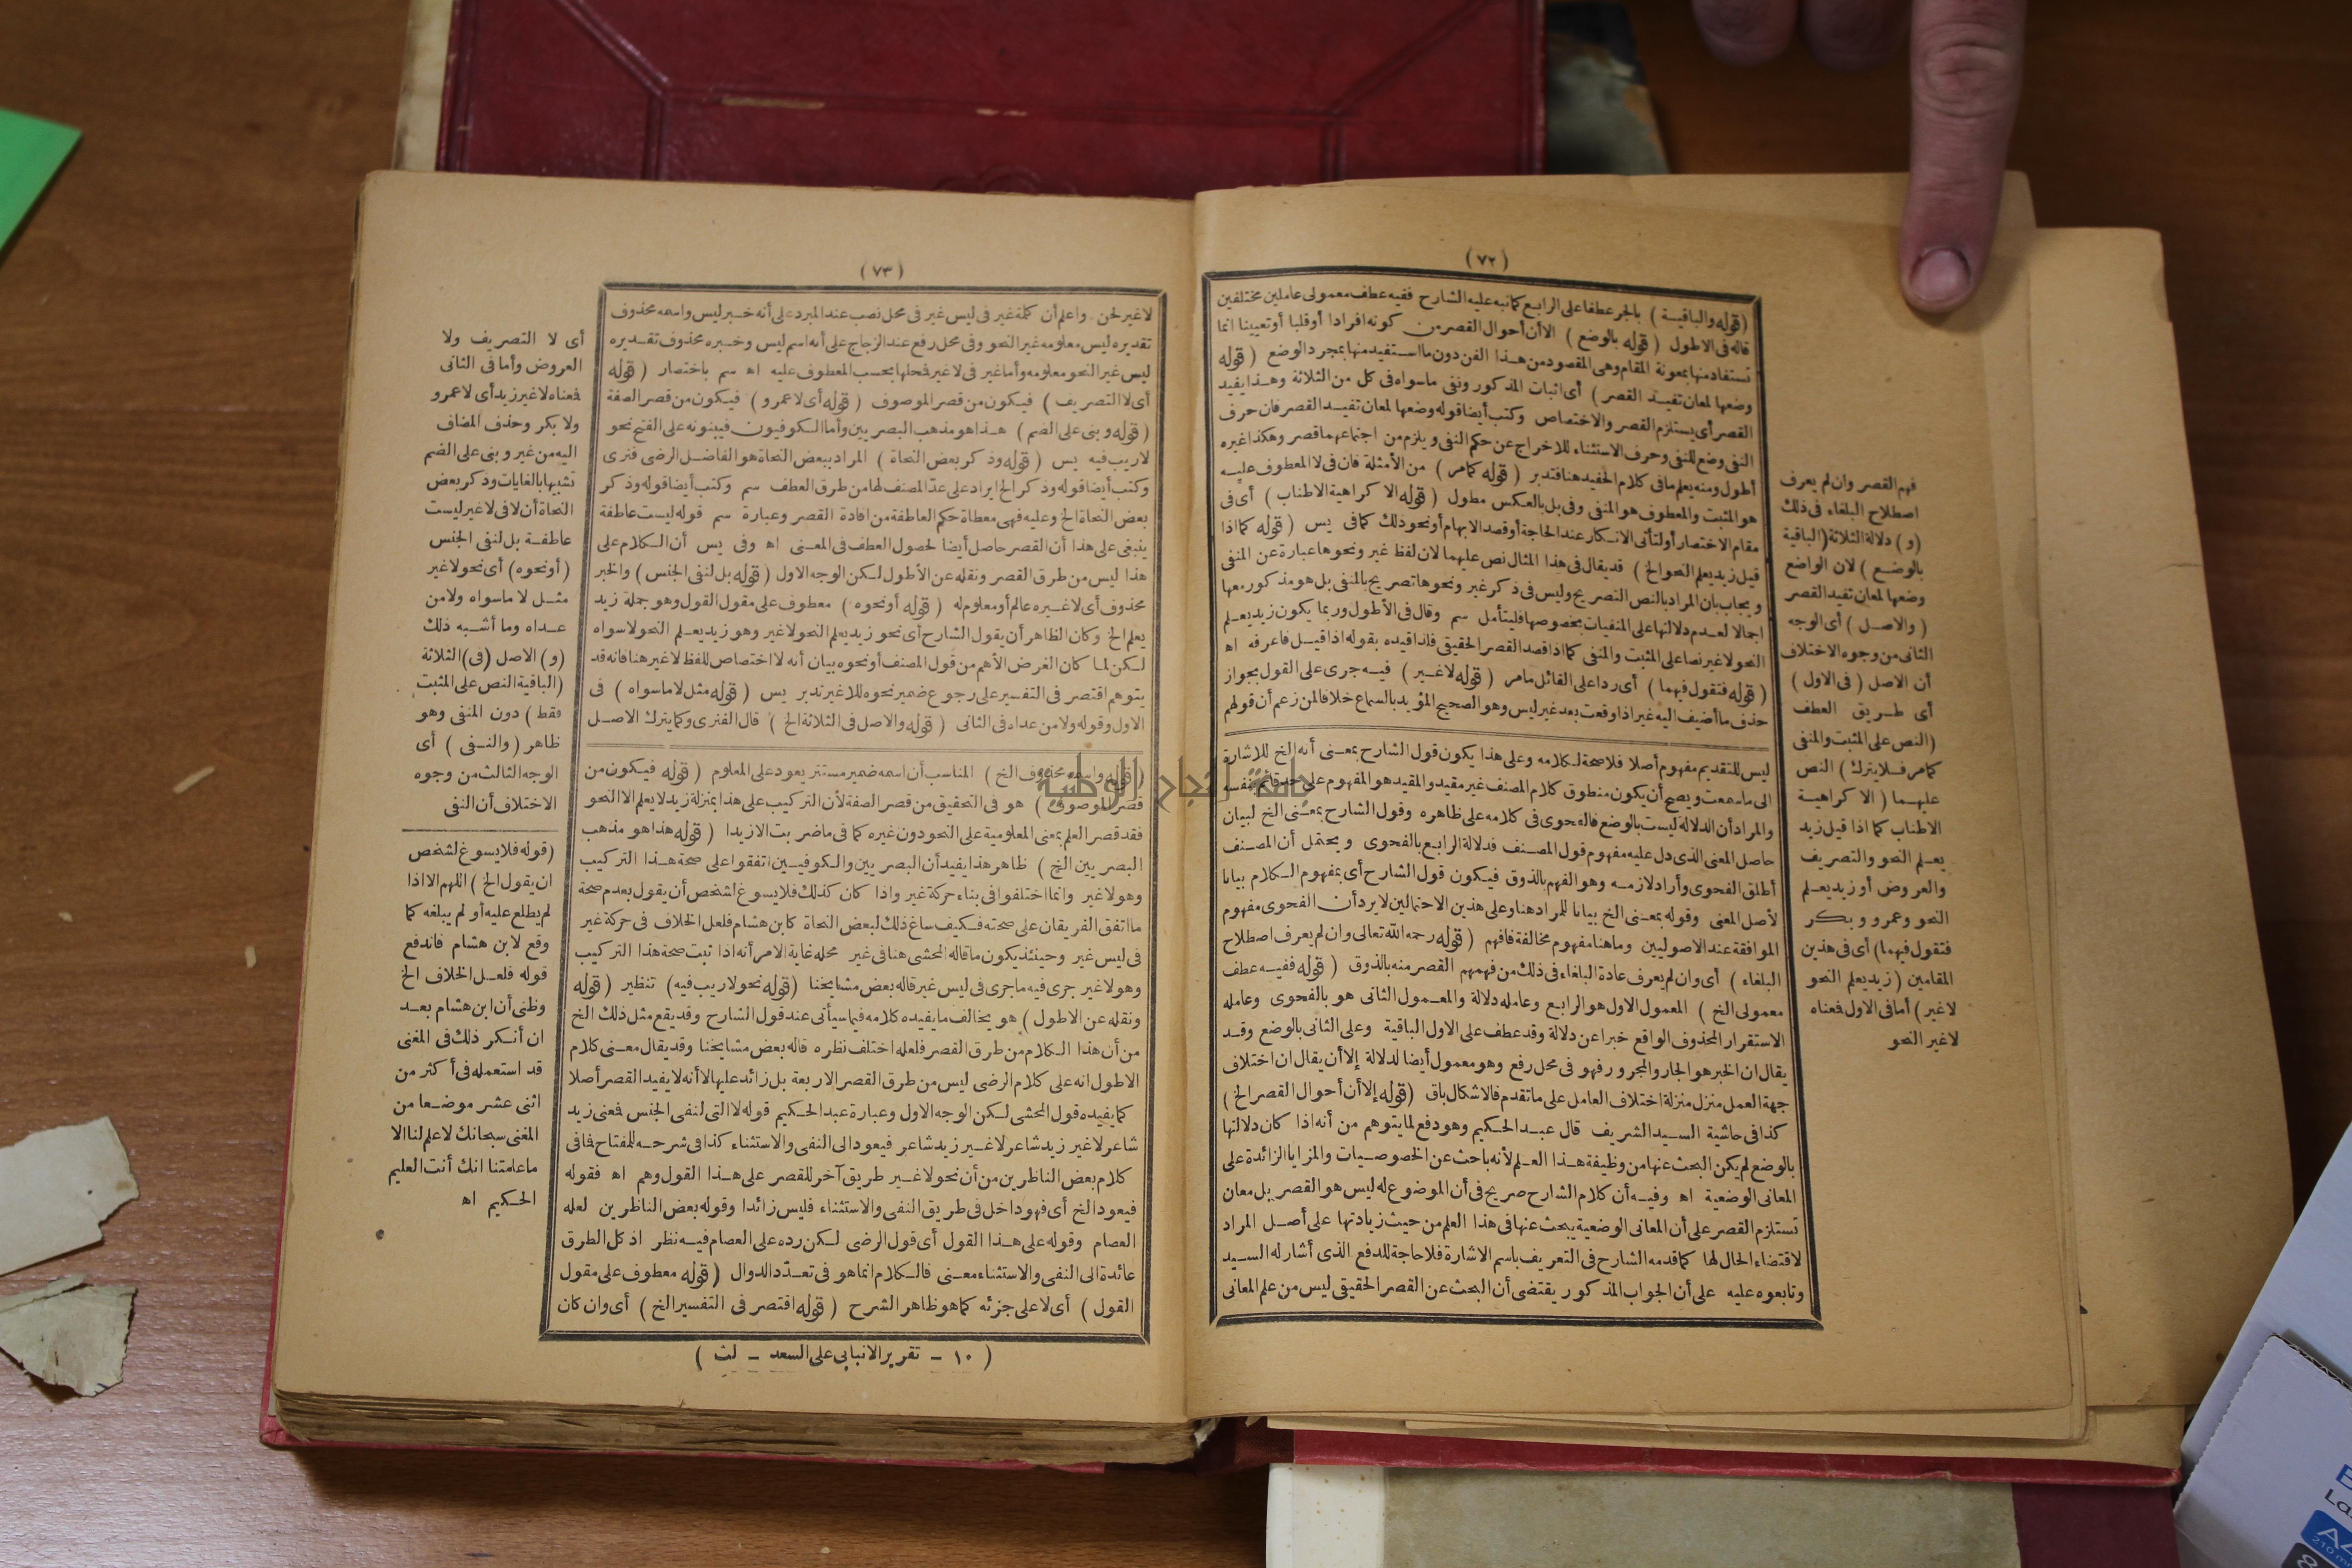 (٧٢)
(قوله والباقية) بالجر عطفا على الرابع كما نبه عليه الشارح ففيه عطف معمولى عاملين مختلفين
قاله فى الاطول (قوله بالوضع) الا أن أحوال القصر من كونه افرادا أو قلبا أو تعيينا انما
تستفاد منها بمعونة المقام وهى المقصود من هذا الفن دون ما استفيد منها بمجرد الوضع (قوله
وضعها لمعان تفيد القصر) أى اثبات المذكور ونفى ماسواه فى كل من الثلاثة وهذا يفيد
القصر أى يستلزم القصر والاختصاص وكتب أيضا قوله وضعها لمعان تفيد القصر فان حرف
النفى وضع للنفى وحرف الاستثناء للاخراج عن حكم النفى ويلزم من اجتماعهما قصر وهكذا غيره
أطول ومنه يعلم ما فى كلام الحفيد هنا فتدبر (قوله كما مر) من الأمثلة فان فى لا المعطوف عليه
هو المثبت والمعطوف هو المنفى وفى بل بالعكس مطول (قوله الا كراهية الاطناب) أى فى
مقام الاختصار أولتأتى الانكار عند الحاجة أو قصد الابهام أو نحو ذلك كما فى يس (قوله كما اذا
قيل زيد يعلم النحو الخ) قد يقال فى هذا المثال نص عليهما لان لفظ غير ونحوها عبارة عن المنفى
ويجاب بان المراد بالنص التصريح وليس فى ذكر غير ونحوها تصريح بالمنفى بل هو مذكور معها
اجمالا لعدم دلالتها على المنفيات بخصوصها فليتأمل سم وقال فى الأطول وربما يكون زيد يعلم
النحو لاغير نصا على المثبت والمنفى كما اذا قصد القصر الحقيقى فلذا قيده بقوله اذا قيل فاعرفه اه
(قوله فتقول فيهما) أى ردا على القائل مامر (قوله لاغير) فيه جرى على القول بجواز
حذف ما أضيف اليه غير اذا وقعت بعد غير ليس وهو الصحيح المؤيد بالسماع خلافا لمن زعم أن قولهم
ليس للتقديم مفهوم أصلا فلا صحة لكلامه وعلى هذا يكون قول الشارح بمعنى أنه الخ للاشارة
الى ماسمعت ويصح أن يكون منطوق كلام المصنف غير مقيد والمقيد هو المفهوم على حد
والمراد أن الدلالة ليست بالوضع فالفحوى فى كلامه على ظاهره وقول الشارح بمعنى الخ لبيان
حاصل المعنى الذى دل عليه مفهوم قول المصنف فدلالة الرابع بالفحوى ويحتمل أن المصنف
أطلق الفحوى وأراد لازمه وهو الفهم بالذوق فيكون قول الشارح أى بمفهوم الكلام بيانا
لأصل المعنى وقوله بمعنى الخ بيانا للمراد هنا وعلى هذين الاحتمالين لا يرد أن الفحوى مفهوم
الموافقة عند الاصوليين وما هنا مفهوم مخالفة فافهم (قوله رحمه الله تعالى وان لم يعرف اصطلاح
البلغاء) أى وان لم يعرف عادة البلغاء فى ذلك من فهمهم القصر منه بالذوق (قوله ففيه عطف
معمولى الخ) المعمول الاول هو الرابع وعامله دلالة والمعمول الثانى هو بالفحوى وعامله
الاستقرار المحذوف الواقع خبرا عن دلالة وقد عطف على الاول الباقية وعلى الثانى بالوضع وقد
يقال ان الخبر هو الجار والمجرور فهو فى محل رفع وهو معمول أيضا لدلالة إلا أن يقال ان اختلاف
جهة العمل منزل منزلة اختلاف العامل على ما تقدم فالاشكال باق (قوله إلا أن أحوال القصر الخ)
كذا فى حاشية السيد الشريف قال عبد الحكيم وهو دفع لما يتوهم من أنه اذا كان دلالتها
بالوضع لم يكن البحث عنها من وظيفة هذا العلم لأنه باحث عن الخصوصيات والمزايا الزائدة على
المعانى الوضعية اه وفيه أن كلام الشارح صريح فى أن الموضوع له ليس هو القصر بل معان
تستلزم القصر على أن المعانى الوضعية يبحث عنها فى هذا العلم من حيث زيادتها على أصل المراد
لاقتضاء الحال لها كما قدمه الشارح فى التعريف باسم الاشارة فلا حاجة للدفع الذى أشار له السيد
وتابعوه عليه على أن الجواب المذكور يقتضى أن البحث عن القصر الحقيقى ليس من علم المعانى
فهم القصر وان لم يعرف
اصطلاح البلغاء فى ذلك
(و) دلالة الثلاثة (الباقية
بالوضع) لان الواضع
وضعها لمعان تفيد القصر
(والاصل) أى الوجه
الثانى من وجوه الاختلاف
أن الاصل (فى الاول)
أى طريق العطف
(النص على المثبت والمنفى
كما مر فلا يترك) النص
عليهما (الا كراهية
الاطناب كما اذا قيل زيد
يعلم النحو والتصريف
والعروض أو زيد يعلم
النحو وعمرو وبكر
فتقول فيهما) أى فى هذين
المقامين (زيد يعلم النحو
لاغير) أما فى الاول فمعناه
لاغير النحو
(٧٣)
لاغير لحن واعلم أن كلمة غير فى ليس غير فى محل نصب عند المبرد على أنه خبر ليس واسمه محذوف
تقديره ليس معلومه غير النحو وفى محل رفع عند الزجاج على أنه اسم ليس وخبره محذوف تقديره
ليس غير النحو معلومه وأما غير فى لاغير فمحلها بحسب المعطوف عليه اه سم باختصار (قوله
أى لا التصريف) فيكون من قصر الموصوف (قوله أى لا عمرو) فيكون من قصر الصفة
(قوله وبنى على الضم) هذا هو مذهب البصريين وأما الكوفيون فيبنونه على الفتح نحو
لاريب فيه يس (قوله وذكر بعض النحاة) المراد ببعض النحاة هو الفاضل الرضى فنرى
وكتب أيضا قوله وذكر الخ ايراد على عدّ المصنف لها من طرق العطف سم وكتب أيضا قوله وذكر
بعض النحاة الخ وعليه فهى معطاة حكم العاطفة من افادة القصر وعبارة سم قوله ليست عاطفة
ينبغى على هذا أن القصر حاصل أيضا لحصول العطف فى المعنى اه وفى يس أن الكلام على
هذا ليس من طرق القصر ونقله عن الأطول لكن الوجه الاول (قوله بل لنفى الجنس) والخبر
محذوف أى لاغيره عالم أو معلوم له (قوله أو نحوه) معطوف على مقول القول وهو جملة زيد
يعلم الخ وكان الظاهر أن يقول الشارح أى نحو زيد يعلم النحو لاغير وهو زيد يعلم النحو لاسواه
لكن لما كان الغرض الأهم من قول المصنف أو نحوه بيان أنه لا اختصاص للفظ لاغير هنا فانه قد
يتوهم اقتصر فى التفسير على رجوع ضمير نحوه للاغير تدبر يس (قوله مثل لا ماسواه) فى
الاول وقوله ولا من عداه فى الثانى (قوله والاصل فى الثلاثة الخ) قال الفنرى وكما يترك الاصل
(قوله واسمه محذوف الخ) المناسب أن اسمه ضمير مستتر يعود على المعلوم (قوله فيكون من
قصر الموصوف) هو فى التحقيق من قصر الصفة لأن التركيب على هذا بمنزلة زيد لا يعلم الا النحو
فقد قصر العلم بمعنى المعلومية على النحو دون غيره كما فى ماضربت الا زيدا (قوله هذا هو مذهب
البصريين الخ) ظاهر هذا يفيد أن البصريين والكوفيين اتفقوا على صحة هذا التركيب
وهو لاغير وانما اختلفوا فى بناء حركة غير واذا كان كذلك فلا يسوغ لشخص أن يقول بعدم صحة
ما اتفق الفريقان على صحته فكيف ساغ ذلك لبعض النحاة كابن هشام فلعل الخلاف فى حركة غير
فى ليس غير وحينئذ يكون ما قاله المحشى هنا فى غير محله غاية الامر أنه اذا ثبت صحة هذا التركيب
وهو لاغير جرى فيه ما جرى فى ليس غير قاله بعض مشايخنا (قوله نحو لاريب فيه) تنظير (قوله
ونقله عن الاطول) هو يخالف ما يفيده كلامه فيما سيأتى عند قول الشارح وقد يقع مثل ذلك الخ
من أن هذا الكلام من طرق القصر فلعله اختلف نظره قاله بعض مشايخنا وقد يقال معنى كلام
الاطول انه على كلام الرضى ليس من طرق القصر الاربعة بل زائد عليها لا أنه لا يفيد القصر أصلا
كما يفيده قول المحشى لكن الوجه الاول وعبارة عبد الحكيم قوله لا التى لنفى الجنس فمعنى زيد
شاعر لاغير زيد شاعر لاغير زيد شاعر فيعود الى النفى والاستثناء كذا فى شرحه للمفتاح فما فى
كلام بعض الناظرين من أن نحو لاغير طريق آخر للقصر على هذا القول وهم اه فقوله
فيعود الخ أى فهو داخل فى طريق النفى والاستثناء فليس زائدا وقوله بعض الناظرين لعله
العصام وقوله على هذا القول أى قول الرضى لكن رده على العصام فيه نظر اذ كل الطرق
عائدة الى النفى والاستثناء معنى فالكلام انما هو فى تعدّد الدوال (قوله معطوف على مقول
القول) أى لا على جزئه كما هو ظاهر الشرح (قوله اقتصر فى التفسير الخ) أى وان كان
أى لا التصريف ولا
العروض وأما فى الثانى
فمعناه لاغير زيد أى لا عمرو
ولا بكر وحذف المضاف
اليه من غير وبنى على الضم
تشبيها بالغايات وذكر بعض
النحاة أن لا فى لاغير ليست
عاطفة بل لنفى الجنس
(أو نحوه) أى نحو لاغير
مثل لا ماسواه ولا من
عداه وما أشبه ذلك
(و) الاصل (فى) الثلاثة
(الباقية النص على المثبت
فقط) دون المنفى وهو
ظاهر (والنفى) أى
الوجه الثالث من وجوه
الاختلاف أن النفى
(قوله فلا يسوغ لشخص
ان يقول الخ) اللهم الا اذا
لم يطلع عليه أو لم يبلغه كما
وقع لابن هشام فاندفع
قوله فلعل الخلاف الخ
وظنى أن ابن هشام بعد
ان أنكر ذلك فى المغنى
قد استعمله فى أكثر من
اثنى عشر موضعا من
المغنى سبحانك لا علم لنا الا
ما علمتنا انك أنت العليم
الحكيم اه
(١٠ - تقرير الانبابى على السعد - لث)
جامعة النجاح الوطنية